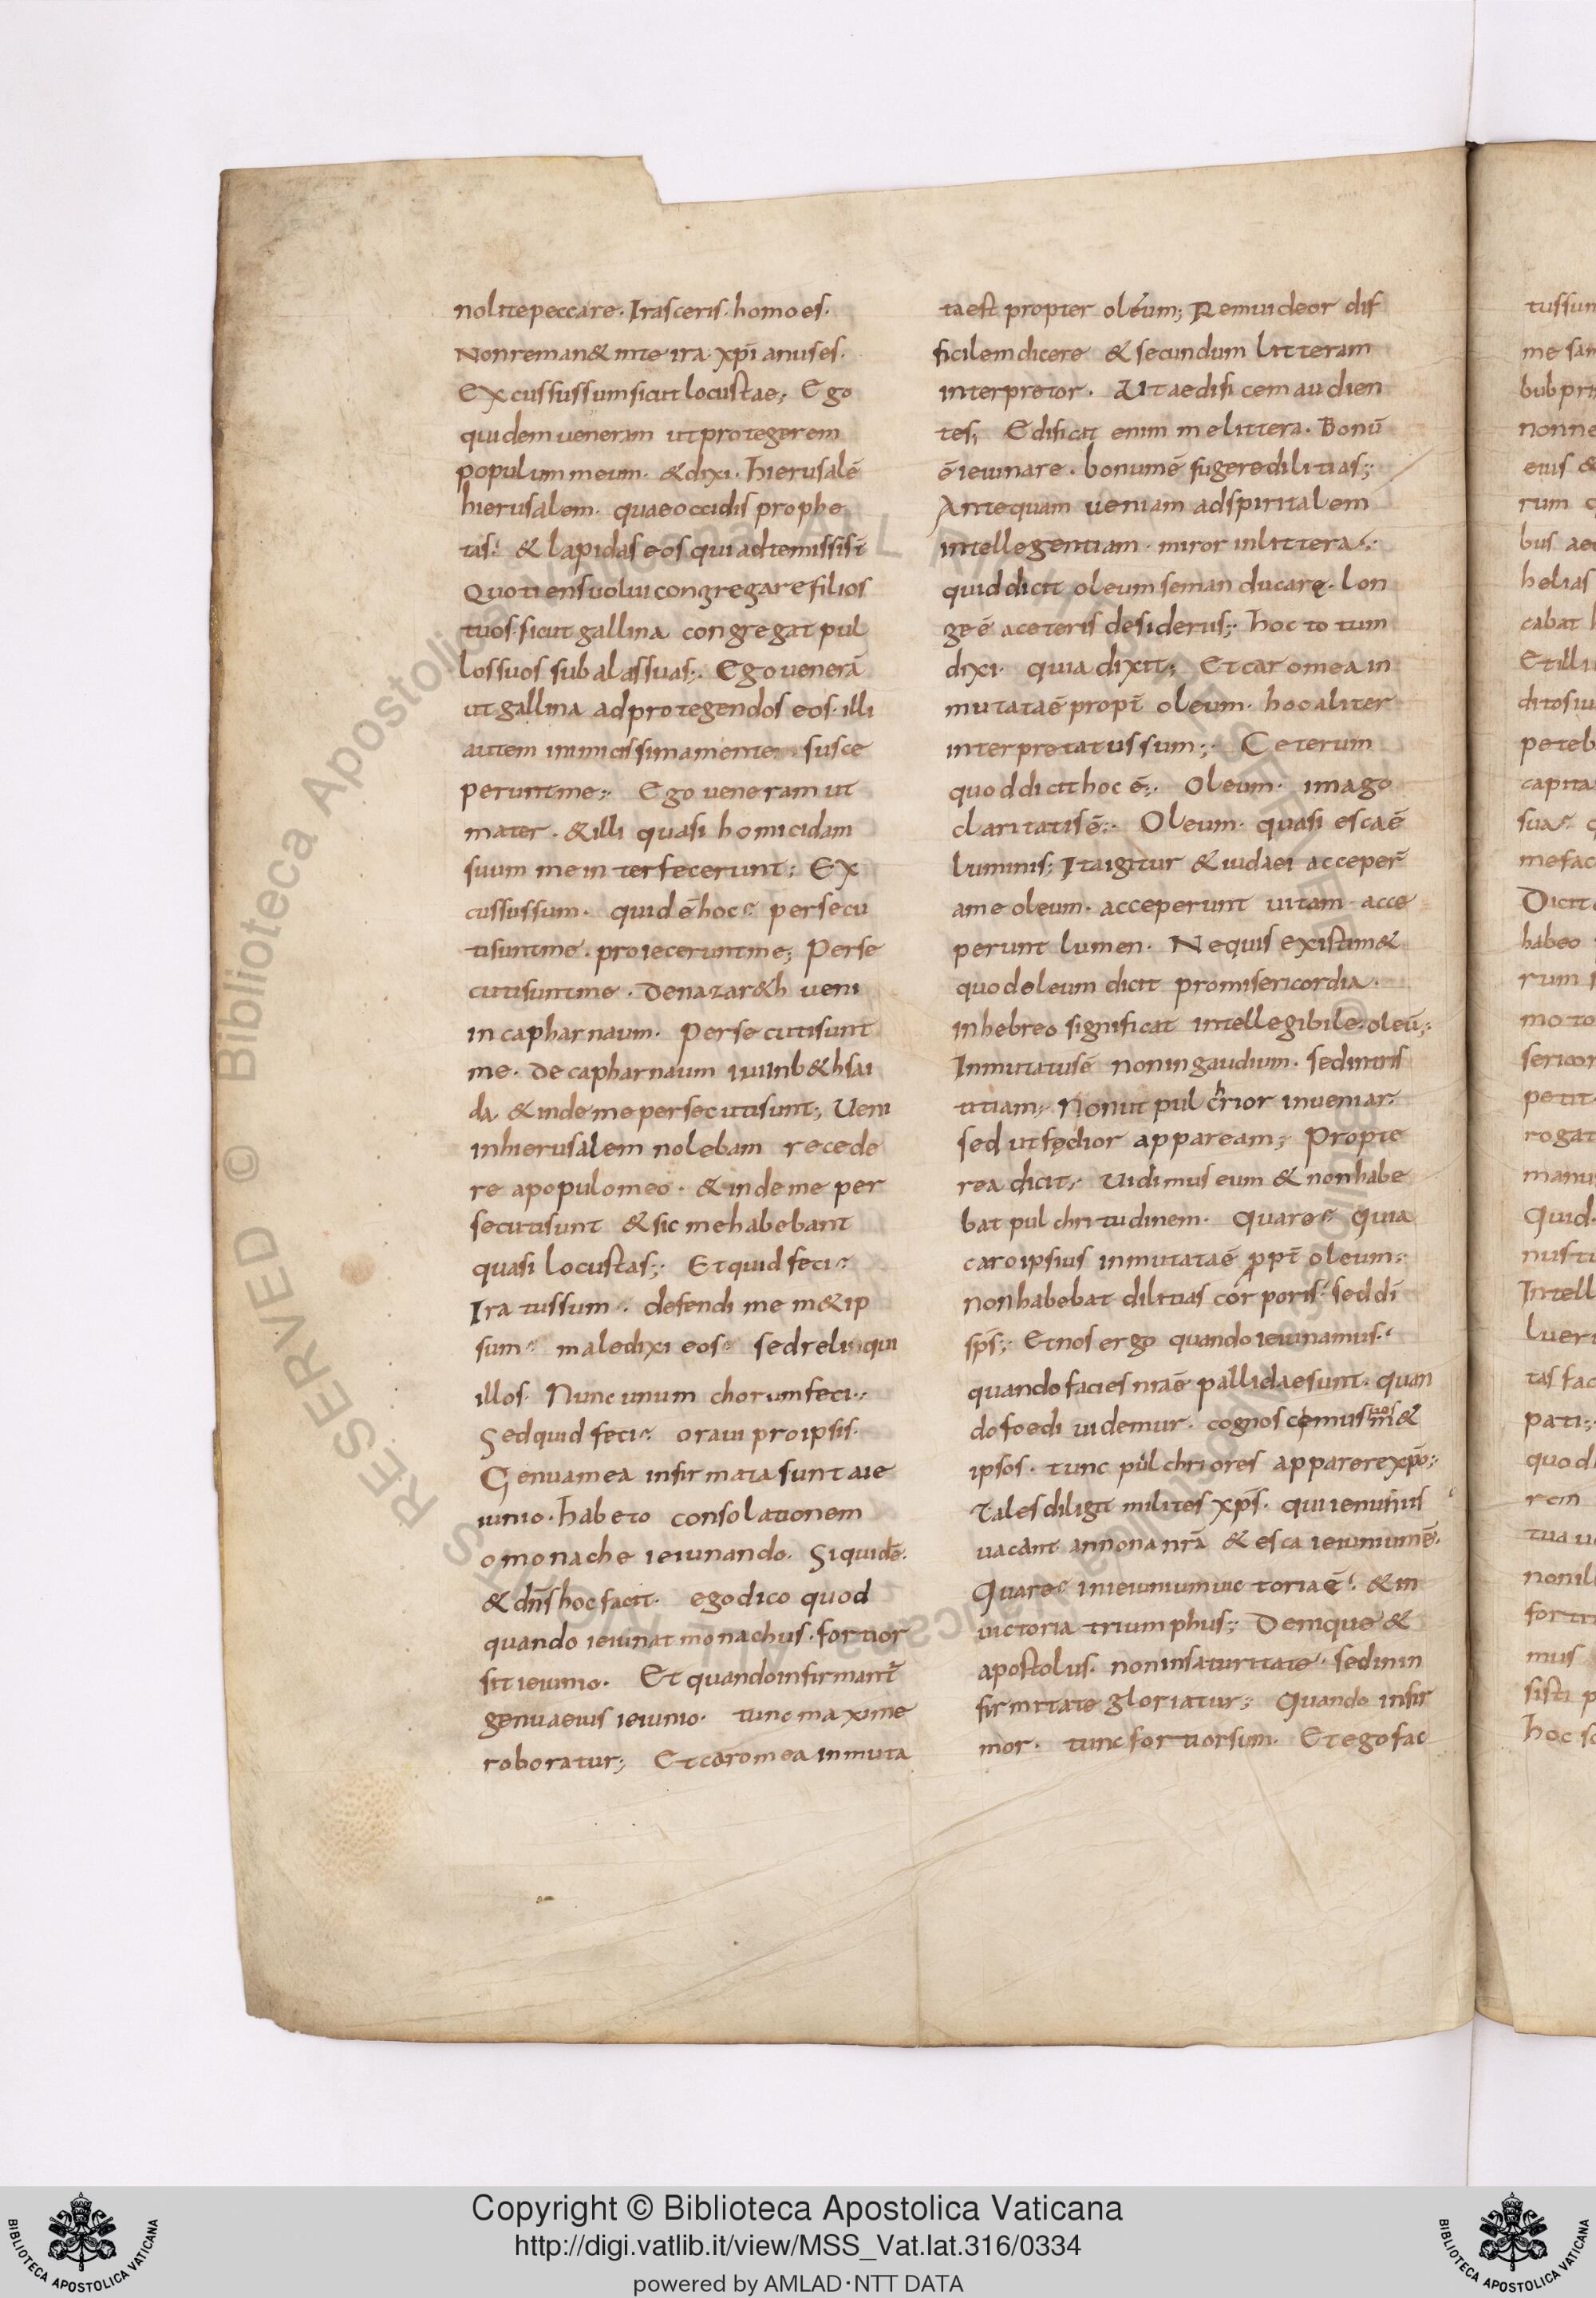 nolite peccare· Irasceris· homo es·
Non reman& in te ira· xp̄i anus es·
Excussus sum sicut locustae; Ego
quidem ueneram ut protegerem
populum meum· & dixi· hierusalē
hierusalem· quae occidis prophe
tas· & lapidas eos qui ad te missi sī
Quotiens uolui congregare filios
tuos· sicut gallina congregat pul
los suos sub alas suas;· Ego uenerā
ut gallina ad protegendos eos· illi
autem inimicissima mente susce
perunt me;· Ego ueneram ut
mater· & illi quasi homicidam
suum me interfecerunt; Ex
cussus sum· quid ē hoc? persecu
ti sunt me· proiecerunt me; Perse
cuti sunt me· De nazar&h ueni
in capharnaum· Persecuti sunt
me· De capharnaum iui in b&hsai
da & inde me persecuti sunt; Ueni
in hierusalem nolebam recede
re a populo meo· & inde me per
secuti sunt & sic me habebant
quasi locustas;· Et quid feci?
Iratus sum· defendi me m& ip
sum? maledixi eos? sed relinqui
illos· Nunc unum chorum feci·;
Sed quid feci? oraui pro ipsis·
Genua mea infirmata sunt a ie
iunio· habeto consolationem
o monache ieiunando· Si quidē·
& dn̄s hoc facit· ego dico quod
quando ieiunat monachus· fortior
sit ieiunio· Et quando infirmant̄
genua eius ieiunio· tunc maxime
roboratur; Et caro mea inmuta
ta est propter oleum; Rem uideor dif
ficilem dicere & secundum litteram
interpretor· Ut aedificem audien
tes; Edificat enim me littera· Bonū
ē ieiunare· bonum ē fugere dilitias;·
Antequam ueniam ad spiritalem
intellegentiam· miror in littera;·
quid dicit oleum se manducare· Lon
ge ē a ceteris desideriis;· hoc totum
dixi· quia dixit; Et caro mea in
mutata ē propt̄ oleum· hoc aliter
interpretatus sum;· Ceterum
quod dicit hoc ē;· Oleum· imago
claritatis ē;· Oleum· quasi esca ē
luminis; Ita igitur & iudaei acceper̄
a me oleum· acceperunt uitam· acce
perunt lumen· Ne quis existim&
quod oleum dicit pro misericordia·
in hebreo significat intellegibile oleū;·
Inmutatus ē non in gaudium· sed in tris
titiam;· Non ut pulcrior inueniar·
sed ut fędior appaream;· Propte
rea dicit;· Uidimus eum & non habe
bat pulchritudinem· Quare? Quia
caro ipsius inmutata ē ꝓpt̄ oleum;·
non habebat dilitias corporis· sed dī
sp̄s;· Et nos ergo quando ieiunamus·
quando facies nr̄ae pallidae sunt· quan
do foedi uidemur· cognoscemus nos m&
ipsos· tunc pulchriores apparere xp̄o;·
Tales diligit milites xp̄s· qui ieiuniis
uacant· annona nr̄a & esca ieiunium ē·
Quare? in ieiunium uictoria ē· & in
uictoria triumphus;· Denique &
apostolus· non in saturitate· sed in in
firmitate gloriatur; Quando infir
mor· tunc fortior sum· Et ego fac
Copyright © Biblioteca Apostolica Vaticana
http://digi.vatlib.it/view/MSS_Vat.lat.316/0334
powered by AMLAD·NTT DATA